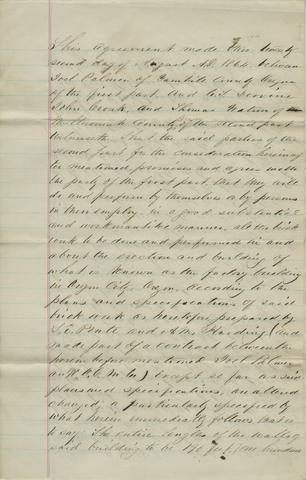 This Agreement made this twenty
second day of August A.D. 1864 between
Joel Palmer of Yamhill County Oregon
of the first part And
John Cronk, and Thomas of
County, of the second part
Witnesseth, That the said parties of the
second part for the consideration herein
after mentioned promises and agree with
the party of the first part, that they will
do and perform by themselves or by persons
in their employ, in a good substantial
and workmanlike manner, all the brick
work to be done and performed in and
about the erection and building of
what is Known as the factory building
in Oregon City, Ogn, according to the
plans and specifications of said
brick work as heretofore prepared by
and Harding, and
made part of a contract between the
herein before mentioned Joel Palmer
and except so far as said
plans and specifications, are altered
changed, or particularly specified by
what herein immediately follows, that is
to say; The entire length of the walls of
said building to be 190 feet, (one hundred